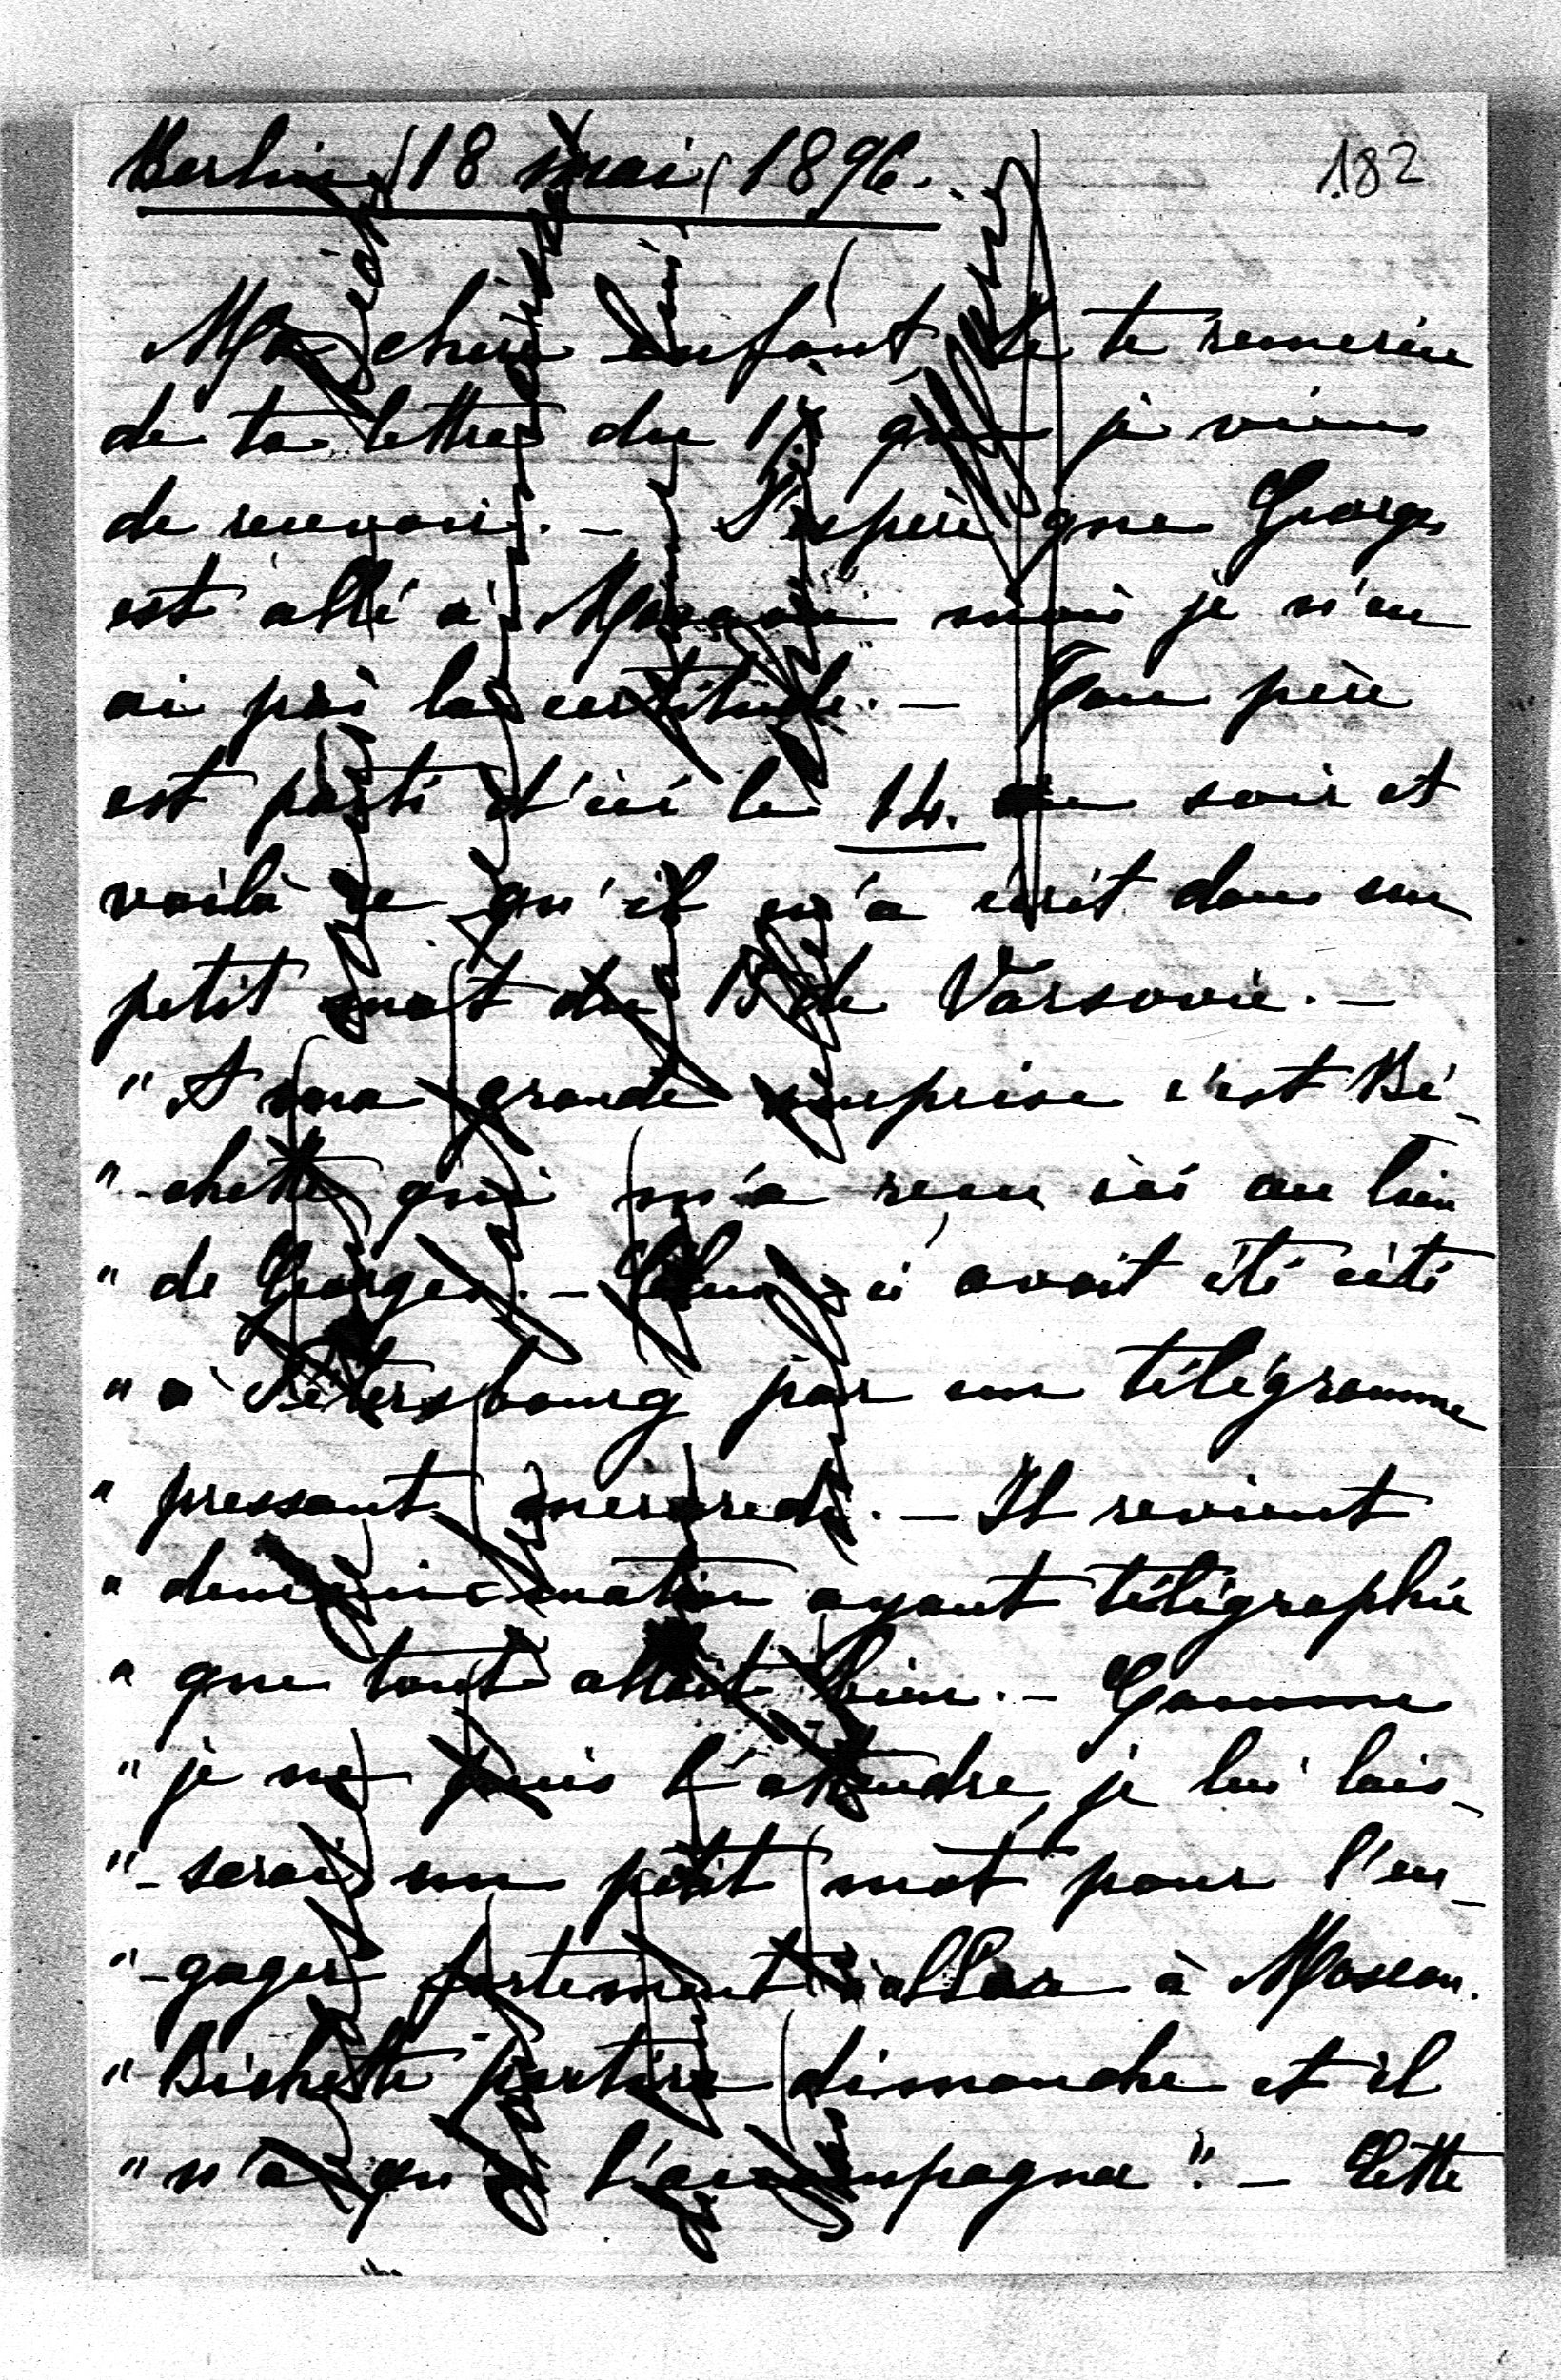 Berlin, 18 mai, 1896. 182
Ma chère enfant, Je te remercie
de ta lettre du 17 que je viens
de recevoir. — J'espère que Georges
est allé à Moscou mais je n'en
ai pas la certitude. — Ton père
est parti d'ici le 14. au soir et
voilà ce qu'il m'a écrit dans un
petit mot du 15 de Varsovie. —
" A ma grande surprise c'est Bi-
" -chette qui m'a reçu ici au lieu
" de Georges. — Celui-ci avait été cité
" à Pétersbourg par un télégramme
" pressant mercredi. — Il revient
" demain matin ayant télégraphié
" que tout allait bien. — Comme
" je ne puis l'attendre, je lui lais-
" -serai un petit mot pour l'en-
" -gager fortement à aller à Moscou.
" Bichette partira dimanche et il
" n'a qu'à l'accompagner". — Cette